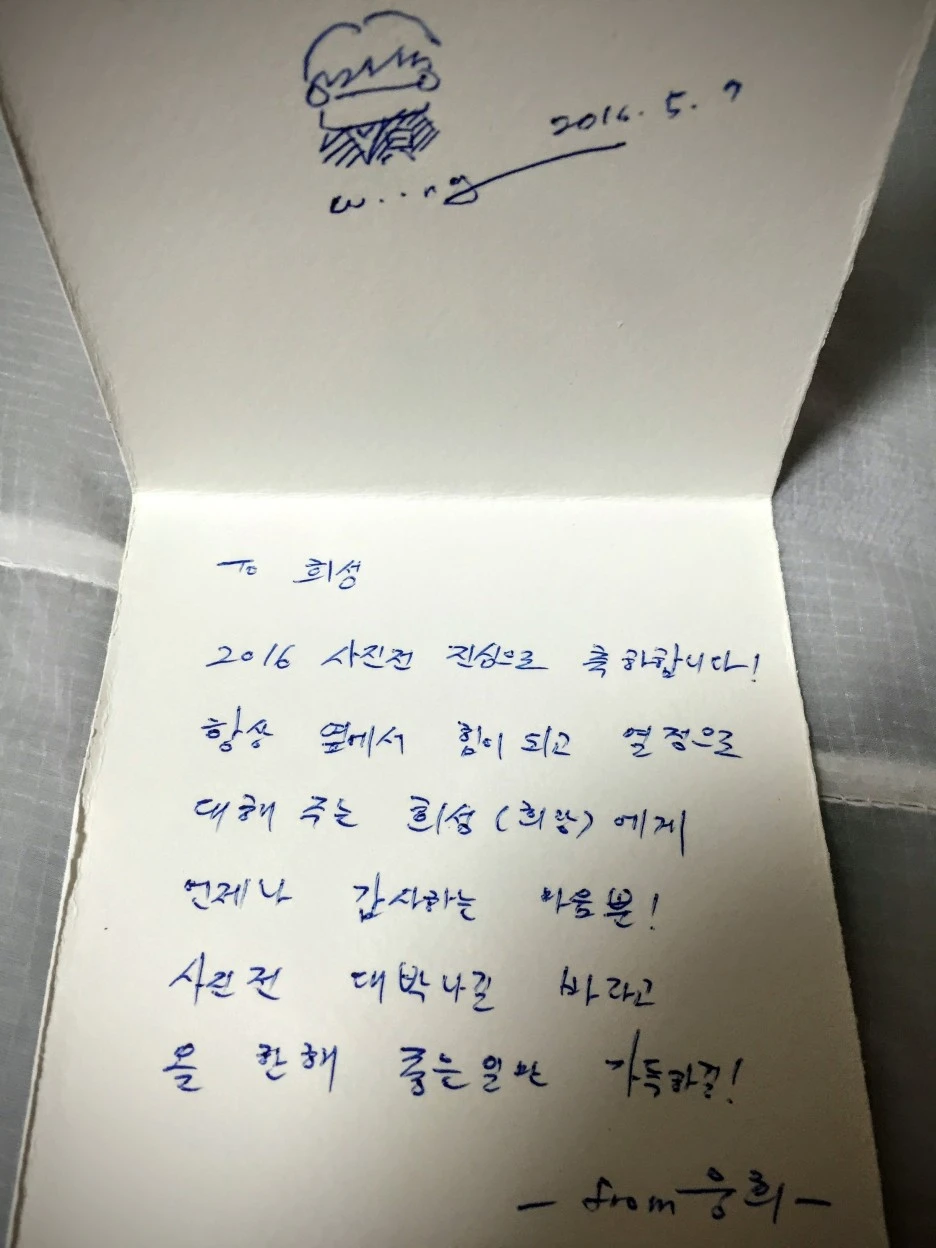 2016. 5. 7
To 희성
2016 사진전 진심으로 축하합니다!
항상 옆에서 힘이 되고 열정으로
대해 주는 희성 ( ) 에게
언제나 감사하는 마음뿐!
사진전 대박나길 바라고
올 한해 좋은일만 가득하길!
- from 웅희 -